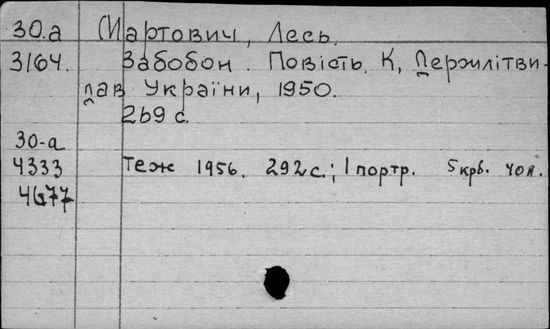 30.а Мартович, Лесь.
3164. Забобон. Повість. К, Держлітви-
дав України, 1950.
269 с.
30-а
4333 Теж 1956. 292 с.; 1 портр. 5 крб. 40 к.
4677